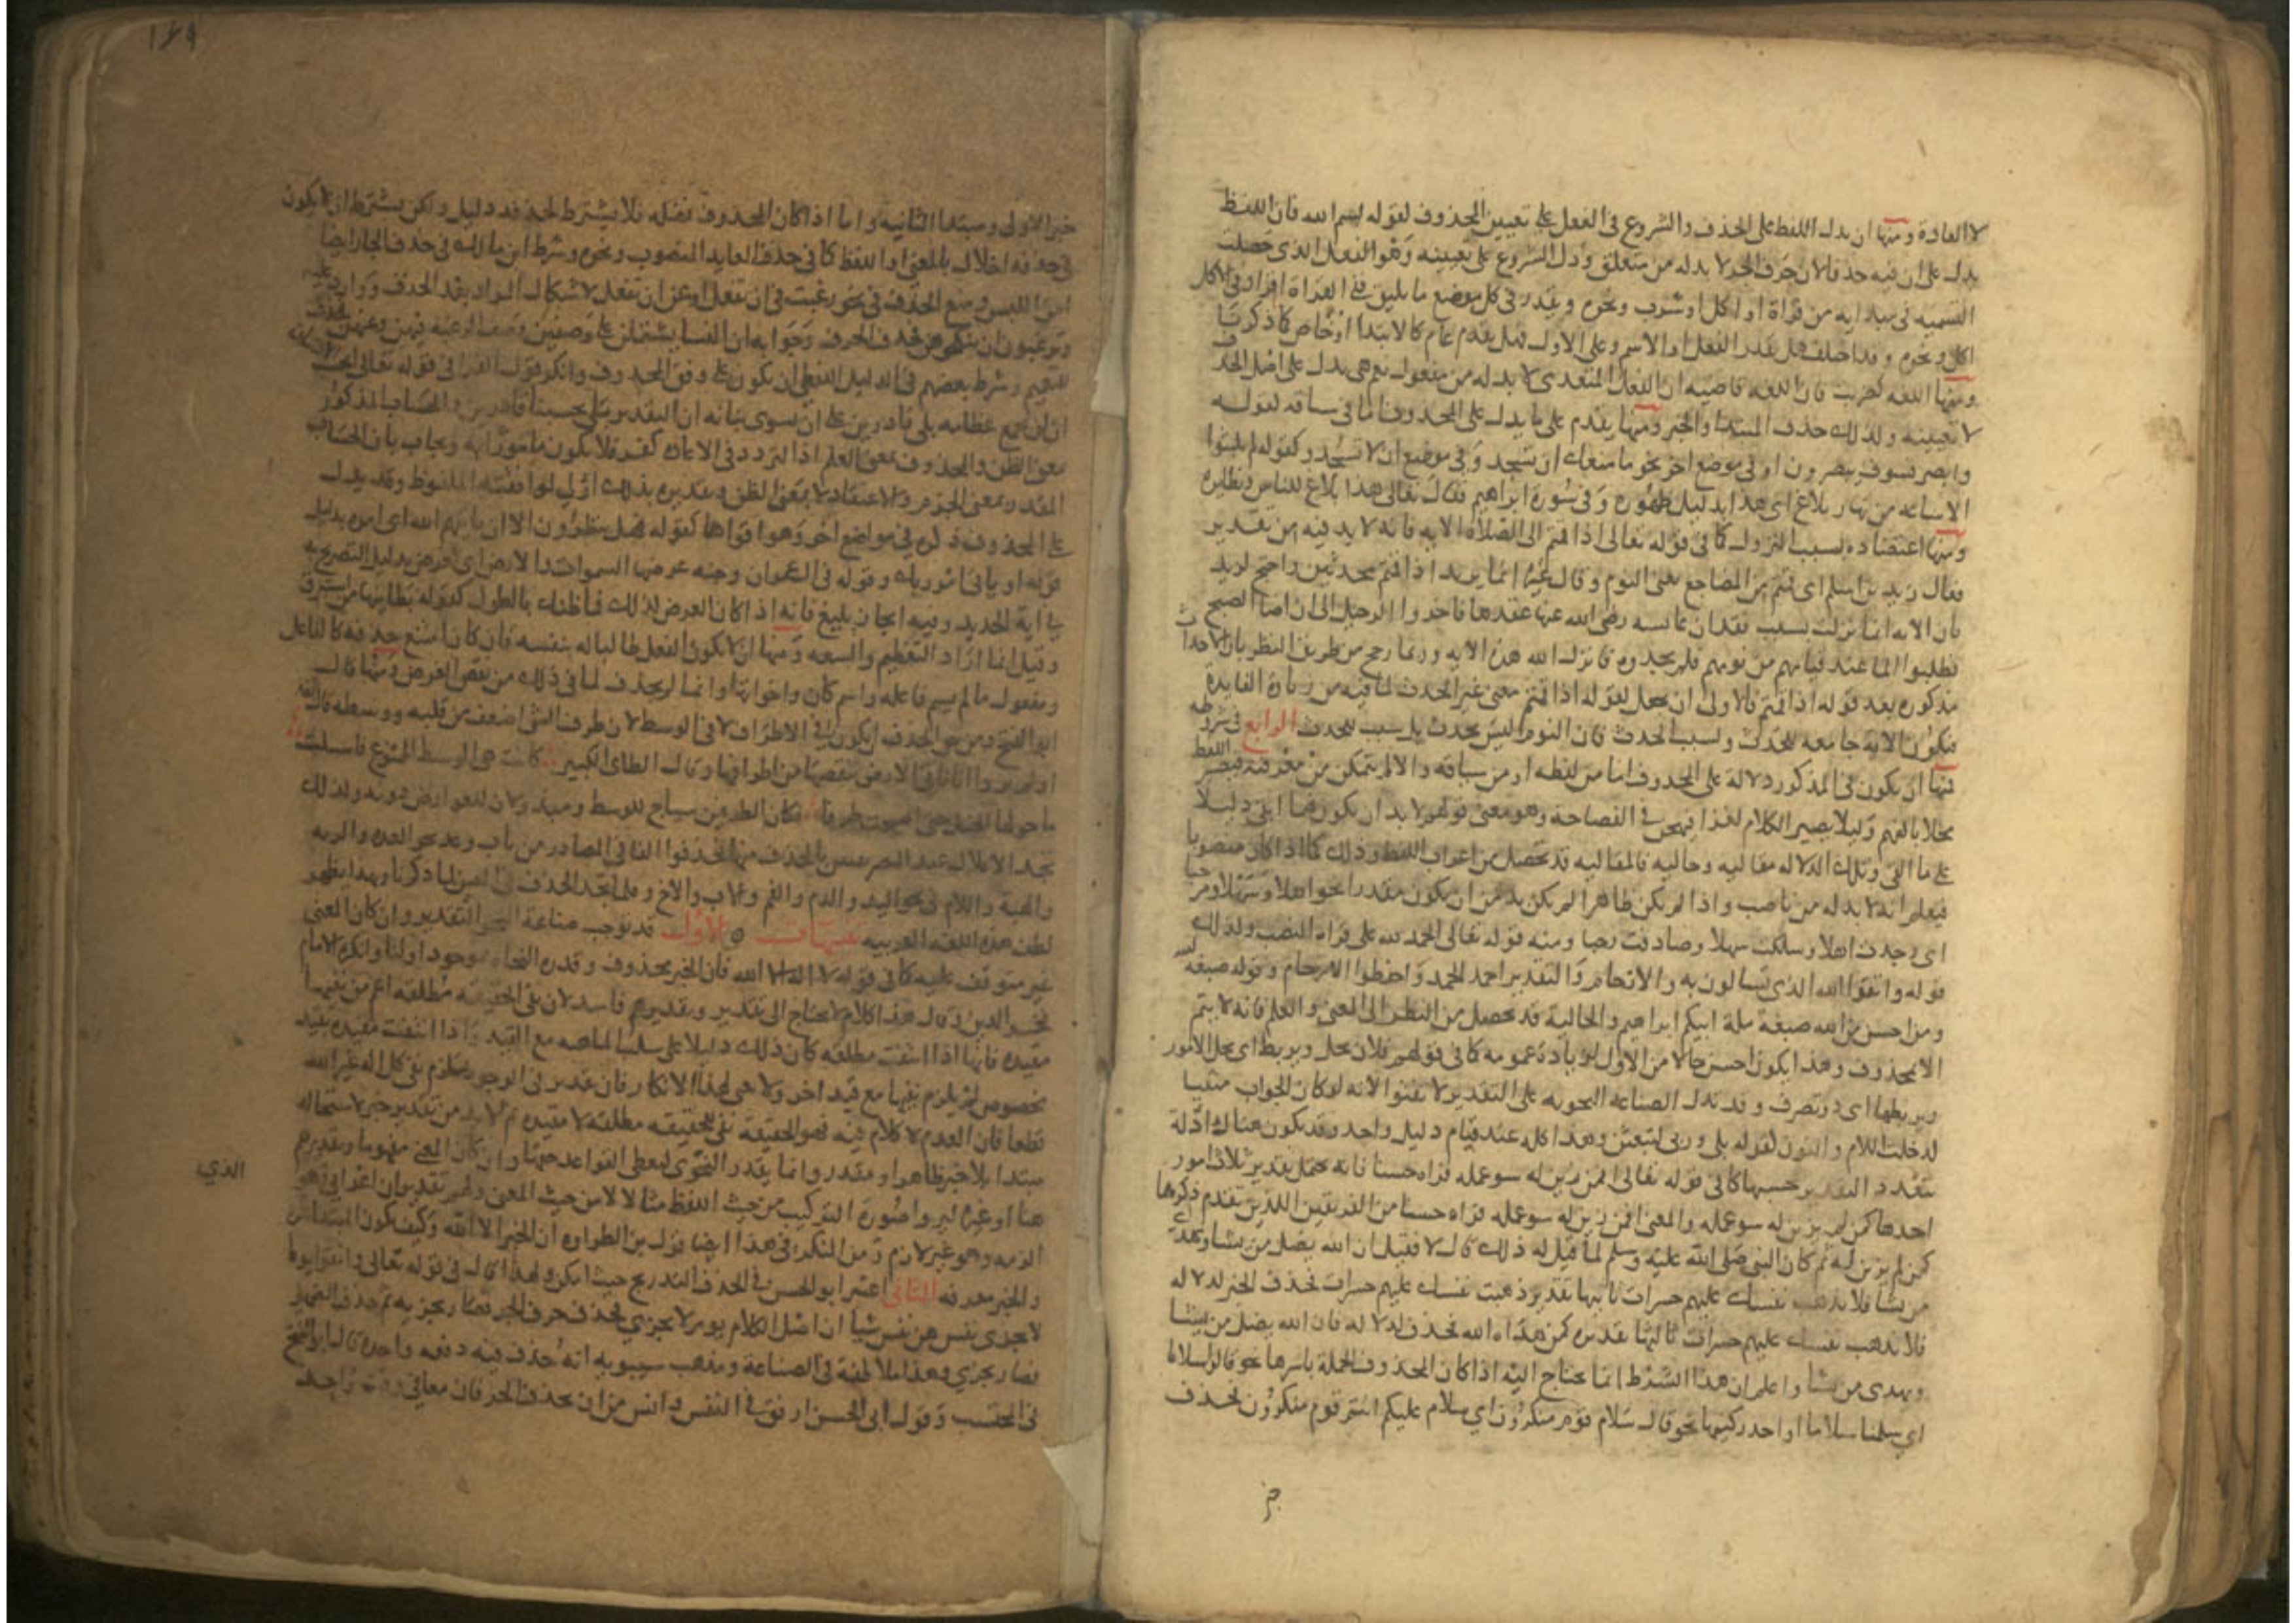 لا العادة ومنها ان يدل اللفظ على الحذف والشروع في الفعل على تعيين المحذوف لقوله بسم الله فان اللفظ
يدل على ان فيه حذفا لان حرف الجر لا بد له من متعلق ودل الشروع على تعيينه وهو الفعل الذي جعلت
التسميه في مبدايه من قراة او اكل او شرب ونحوه ويقدر في كل موضع ما يليق ففي القراة اقرا وفي الاكل
اكل ونحوه وقد اختلف هل يقدر الفعل او الاسم وعلى الاول فهل يقدم عام كالابتدا او خاص كما ذكرنا
ومنها اللغه كضربت فان اللغه قاضيه ان الفعل المتعدى لا بد له من مفعول نعم هي تدل على اصل الحذف
لا تعيينه ولذلك حذف المبتدا والخبر ومنها يقدم على ما يدل على المحذوف اما في سياقه لقوله
وابصر فسوف يبصرون او في موضع اخر نحو ما منعك ان تسجد وفي موضع ان لا تسجد وكقوله لم يلبثوا
الا ساعه من نهار بلاغ اى هذا بدليل ظهوره وفي سورة ابراهيم فقال تعالى هذا بلاغ للناس ونظايره
ومنها اعتضاده بسبب النزول كما في قوله تعالى اذا قمتم الى الصلاة الايه فانه لا بد فيه من تقدير
فقال زيد بن اسلم اى قمتم من المضاجع يعنى النوم وقال غيره انما يريد اذا قمتم محدثين واحتج لزيد
بان الايه انما نزلت بسبب فقدان عايشه رضى الله عنها عقدها فاخروا الرحيل الى ان اضا الصبح
فطلبوا الما عند قيامهم من نومهم فلم يجدوه فانزل الله هذه الايه وربما رجح من طريق النظر بان الاحداث
مذكوره بعد قوله اذا قمتم فالاولى ان يحمل لقوله اذا قمتم معنى غير الحدث لما فيه من زيادة الفايدة
فتكون الاية جامعه للحدث ولسبب الحدث فان النوم ليس بحدث بل سبب للحدث الرابع في شروطه
فمنها ان يكون في المذكور دلالة على المحذوف اما من لفظه او من سياقه والا لم يتمكن من معرفته فيصير اللفظ
مخلا بالفهم وليلا يصير الكلام لغزا فيهجن في الفصاحة وهو معنى قولهم لا بد ان يكون فيما ابقى دليلا
على ما القى وتلك الدلاله مقاليه وحاليه فالمقاليه قد تحصل من اعراب اللفظ وذلك كما اذا كان منصوبا
فيعلم انه لا بد له من ناصب واذا لم يكن ظاهرا لم يكن بد من ان يكون مقدرا نحو اهلا وسهلا ومرحبا
اى وجدت اهلا وسلكت سهلا وصادفت رحبا ومنه قوله تعالى الحمد لله على قراة النصب ولذلك
قوله واتقوا الله الذى تسالون به والارحام والتقدير احمد الحمد واحفظوا الارحام وقوله صبغة الله
ومن احسن من الله صبغة ملة ابيكم ابراهيم والحالية قد تحصل من النظر الى المعنى والعلم فانه لا يتم
الا بمحذوف وهذا يكون احسن حالا من الاول لزيادة عمومه كما في قولهم فلان يحل ويربط اى يحل الامور
ويربطها اى ذو تصرف وقد تدل الصناعة النحويه على التقدير لا تفتوا لانه لو كان الجواب مثبتا
لدخلت اللام والنون لقوله بلى وربى لتبعثن وهذا كله عند قيام دليل واحد وقد يكون هناك ادلة
يتعدد التقدير بحسبها كما في قوله تعالى افمن زين له سو عمله فراه حسنا فانه يحتمل تقدير ثلاث امور
احدها كمن لم يزين له سو عمله والمعنى افمن زين له سو عمله فراه حسنا من الفريقين اللذين تقدم ذكرهما
كمن لم يزين له ثم كان النبي صلى الله عليه وسلم لما قيل له ذلك قال لا فقيل ان الله يضل من يشا ويهدي
من يشا فلا تذهب نفسك عليهم حسرات ثانيها تقدير ذهبت نفسك عليهم حسرات فحذف الخبر لدلاله
فلا تذهب نفسك عليهم حسرات ثالثها تقديره كمن هداه الله فحذف لدلاله فان الله يضل من يشا
ويهدى من يشا واعلم ان هذا الشرط انما يحتاج اليه اذا كان المحذوف الجملة باسرها نحو قالوا سلاما
اى سلمنا سلاما او احد ركنيها نحو قال سلام قوم منكرون اي سلام عليكم انتم قوم منكرون فحذف
خبر الاولى ومبتدا الثانيه واما اذا كان المحذوف فضله فلا يشترط لحذفه دليل ولكن يشترط ان لا يكون
في حذفه اخلال بالمعنى او اللفظ كما في حذف العايد المنصوب ونحوه وشرط ابن مالك في حذف الجار ايضا
امن اللبس ومنع الحذف في نحو رغبت في ان تفعل او عن ان تفعل لاشكال المراد بعد الحذف واورد عليه
وترغبون ان تنكحوهن فحذف الحرف وجوابه ان النسا يشتملن على وصفين وصف الرغبه فيهن وعنهن فحذف
للتعميم وشرط بعضهم في الدليل اللفظى ان يكون على وفق المحذوف وانكر قول الفرا في قوله تعالى ايحسب الانسان
ان لن نجمع عظامه بلى قادرين على ان نسوى بنانه ان التقدير بلى حسبنا قادرين والحساب المذكور
بمعنى الظن والمحذوف بمعنى العلم اذ التردد في الاعادة كفر فلا يكون مامورا به ويجاب بان الحساب
المقدر بمعنى الجزم والاعتقاد لا بمعنى الظن
على المحذوف ذكره في مواضع اخر وهو اقواها كقوله هل ينظرون الا ان ياتيهم الله اى امره بدليل
قوله او ياتى امر ربك وقوله في ال عمران وجنه عرضها السموات والارض اى كعرض بدليل التصريح به
في اية الحديد وفيه ايجاز بليغ فانه اذا كان العرض لذلك فما ظنك بالطول كقوله بطاينها من استبرق
وقيل انما اراد التعظيم والسعه ومنها ان لا يكون الفعل طالبا له بنفسه فان كان امتنع حذفه كالفاعل
ومفعول ما لم يسم فاعله واسم كان واخواتها وانما لم يحذف لما في ذلك من نقض الغرض ومنها قال
ابو الفتح ومن حق الحذف ان يكون في الاطراف لا في الوسط لان طرف الشى اضعف من قلبه ووسطه قال الله
اولم يروا انا ناتى الارض ننقصها من اطرافها وقال الطائى الكبير كانت هى الوسط الممنوع فاستلبت
ما حولها الخيل حتى اصبحت طرفا فكان الطرفين سياج للوسط ومبذولان للعوارض دونه ولذلك
تجد الاعلال عند التصريفيين بالحذف منها فحذفوا الفا في المصادر من باب وعد نحو العده والزنه
والهبة واللام في نحو اليد والدم والفم والاب والاخ وقلما تجد الحذف في العين لما ذكرنا وبهذا يظهر
لطف هذه اللغه العربيه تنبيهات الاول قد توجب صناعة النحو التقدير وان كان المعنى
غير متوقف عليه كما في قوله لا اله الا الله فان الخبر محذوف وقدره النحاه بموجود او لنا وانكره الامام
فخر الدين وقال هذا كلام لا يحتاج الى تقدير وتقديرهم فاسد لان نفى الحقيقه مطلقه اعم من نفيها
مقيده فانها اذا انتفت مطلقه كان ذلك دليلا على سلب الماهيه مع القيد واذا انتفت مقيده بقيد
مخصوص لم يلزم نفيها مع قيد اخر ولا معنى لهذا الانكار فان تقدير في الوجود يستلزم نفى كل اله غير الله
قطعا فان العدم لا كلام فيه فهو الحقيقة نفى للحقيقه مطلقه لا مقيده ثم لا بد من تقدير خبر لاستحاله
مبتدا بلا خبر ظاهر او مقدر وانما يقدر النحوى ليعطى القواعد حقها وان كان المعنى مفهوما وتقديرهم
هنا او غيره ليروا صورة التركيب من حيث اللفظ مثالا لا من حيث المعنى
الذي
والخبر معرفه الثانى اعتبر ابو الحسن في الحذف التدريج حيث امكن ولهذا قال في قوله تعالى واتقوا يوما
لا تجزى نفس عن نفس شيا ان اصل الكلام يوم لا تجزي فيه فحذف حرف الجر فصار تجزيه ثم حذف الضمير
فصار تجزي وهذا ملاطفة في الصناعة ومذهب سيبويه انه حذف فيه دفعه واحده قال ابو الفتح
في المحتسب وقول ابى الحسن اوثق في النفس وانس من ان يحذف الحرفان معا في وقت واحد